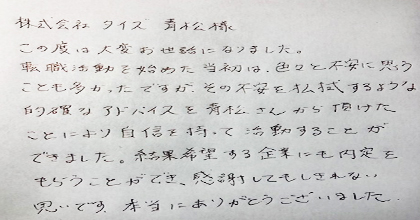 株式会社 クイズ 青松様
この度は大変お世話になりました。
転職活動を始めた当初は、色々と不安に思う
ことも多かったですが、その不安を払拭するような
的確なアドバイスを青松さんから頂けた
ことにより自信を持って活動することが
できました。結果希望する企業にも内定を
もらうことができ、感謝してもしきれない
思いです。本当にありがとうございました。